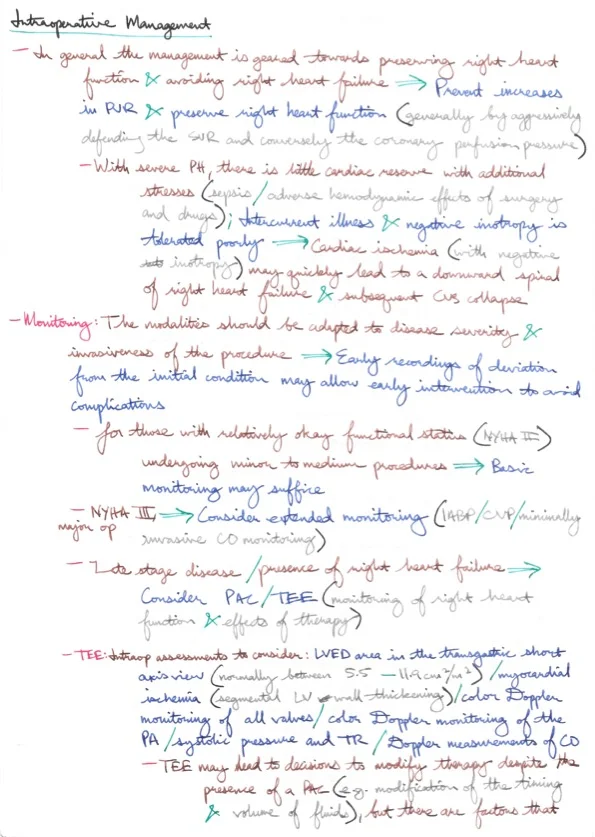 Intraoperative Management
- In general the management is geared towards preserving right heart
function & avoiding right heart failure => Prevent increases
in PVR & preserve right heart function (generally by aggressively
defending the SVR and conversely the coronary perfusion pressure)
- With severe PH, there is little cardiac reserve with additional
stresses (sepsis/adverse hemodynamic effects of surgery
and drugs); Intercurrent illness & negative inotropy is
tolerated poorly -> Cardiac ischemia (with negative
inotropy) may quickly lead to a downward spiral
of right heart failure & subsequent CVS collapse
- Monitoring: The modalities should be adapted to disease severity &
invasiveness of the procedure => Early recordings of deviation
from the initial condition may allow early intervention to avoid
complications
- For those with relatively okay functional status (NYHA II)
undergoing minor to medium procedures => Basic
monitoring may suffice
- NYHA III, => Consider extended monitoring (IABP/CVP/minimally
major op invasive CO monitoring)
- Late stage disease/presence of right heart failure =>
Consider PAC/TEE (monitoring of right heart
function & effects of therapy)
- TEE: Intraop assessments to consider: LVED area in the transgastric short
axis view (normally between 5.5 - 11.9 cm²/m²)/myocardial
ischemia (segmental LV wall thickening)/color Doppler
monitoring of all valves/color Doppler monitoring of the
PA/systolic pressure and TR/Doppler measurements of CO
- TEE may lead to decisions to modify therapy despite the
presence of a PAC (e.g. modification of the timing
& volume of fluids), but there are factors that